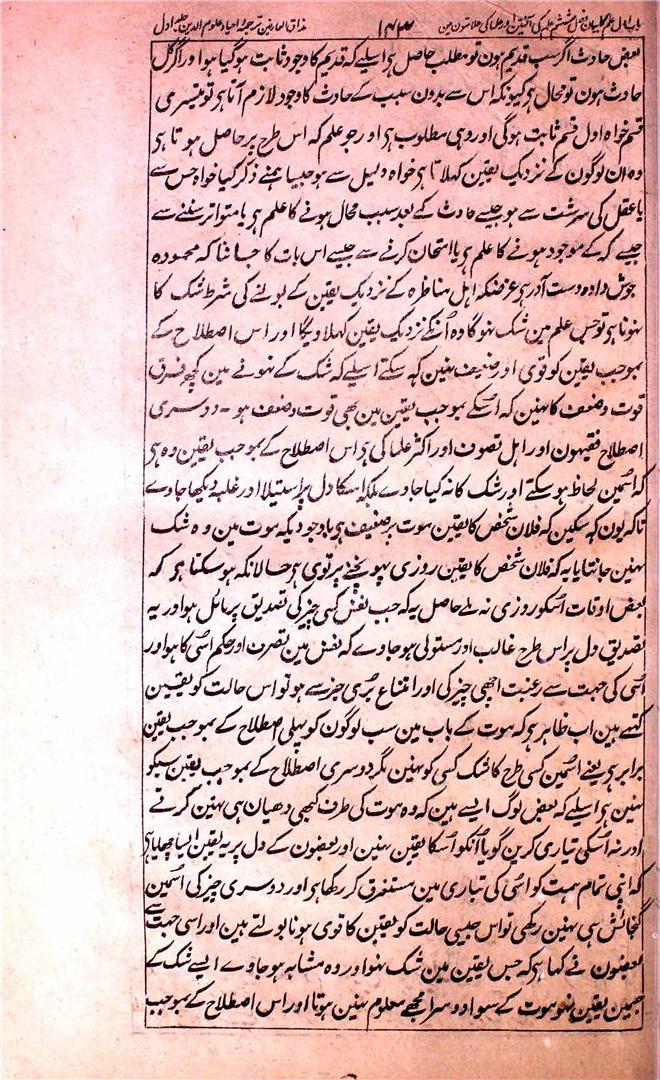 باب اول علم کا بیان فصل ششم علم کی آفتین اور علما کی علامتون مین ۱۴۲ مذاق العارفین ترجمۂ احیاء علوم الدین جلد اول
بعض حادث اگر سب قدیم ہون تو مطلب حاصل ہی اسلیے کہ قدیم کا وجود ثابت ہو گیا ہوا ور اگر کل
حادث ہون تو محال ہی کیونکہ اس سے بدون سبب کے حادث کا وجود لازم آتا ہی تو تیسری
قسم خواہ اول قسم ثابت ہوگی اور وہی مطلوب ہی اور جو علم کہ اس طرح پر حاصل ہوتا ہی
وہ ان لوگون کے نزدیک یقین کہلاتا ہی خواہ دلیل سے ہو جیسا ہمنے ذکر کیا خواہ جس سے
یا عقل کی سرشت سے ہو جیسے حادث کے بدون سبب محال ہونے کا علم ہی یا متواتر سننے سے
جیسے مکہ کے موجود ہونے کا علم ہی یا امتحان کرنے سے جیسے اس بات کا جاننا کہ محمودہ
جوش دادہ دست آور ہی غرضکہ اہل مناظرہ کے نزدیک یقین کے بولنے کی شرط شک کا
نہونا ہی تو جس علم مین شک نہوگا وہ اُنکے نزدیک یقین کہلاویگا اور اس اصطلاح کے
بموجب یقین کو قوی اور ضعیف نہین کہہ سکتے اسلیے کہ شک کے نہونے مین کچھ فرق
قوت و ضعف کا نہین کہ اُسکے بموجب یقین مین بھی قوت و ضعف ہو ۔ دوسری
اصطلاح فقیہون اور اہل تصوف اور اکثر علما کی ہی اس اصطلاح کے بموجب یقین وہ ہی
کہ اُسمین لحاظ ہو سکتے اور شک کا نہ کیا جاوے بلکہ اسکا دل پر استیلا اور غلبہ دیکھا جاوے
تاکہ یون کہہ سکین کہ فلان شخص کا یقین موت پر ضعیف ہی باوجودیکہ موت مین وہ شک
نہین جانتا یا یہ کہ فلان شخص کا یقین روزی پہونچنے پر قوی ہی حالانکہ ہو سکتا ہی کہ
بعض اوقات اُسکو روزی نہ ملے حاصل یہ کہ جب نفس کسی چیز کی تصدیق پر مائل ہو اور یہ
تصدیق دل پر اس طرح غالب اور مستولی ہو جاوے کہ نفس مین تصرف اور حکم اُسی کا ہو اور
اُسی کی جہت سے رغبت اچھی چیز کی اور امتناع بُری چیز سے ہو تو اس حالت کو یقین
کہتے ہین اب ظاہر ہی کہ موت کے باب مین سب لوگون کو پہلی اصطلاح کے بموجب یقین
برابر ہی یعنے اُسمین کسی طرح کا شک کسی کو نہین مگر دوسری اصطلاح کے بموجب یقین سبکو
نہین ہی اسلیے کہ بعض لوگ ایسے ہین کہ وہ موت کی طرف کبھی دھیان ہی نہین کرتے
اور نہ اُسکی تیاری کرین گویا اُنکو اُسکا یقین نہین اور بعضون کے دل پر یہ یقین ایسا چھایا ہی
کہ اپنی تمام ہمت کو اُسی کی تیاری مین مستغرق کر رکھا ہی اور دوسری چیز کی اُسمین
گنجائش ہی نہین رکھی تو اس جیسی حالت کو یقین کا قوی ہونا بولتے ہین اور اسی جہت سے
بعضون نے کہا ہی کہ جس یقین مین شک نہو اور وہ مشابہ ہو جاوے ایسے شک کے
جسمین یقین نہو موت کے سوا دوسرا مجھے معلوم نہین ہوتا اور اس اصطلاح کے بموجب